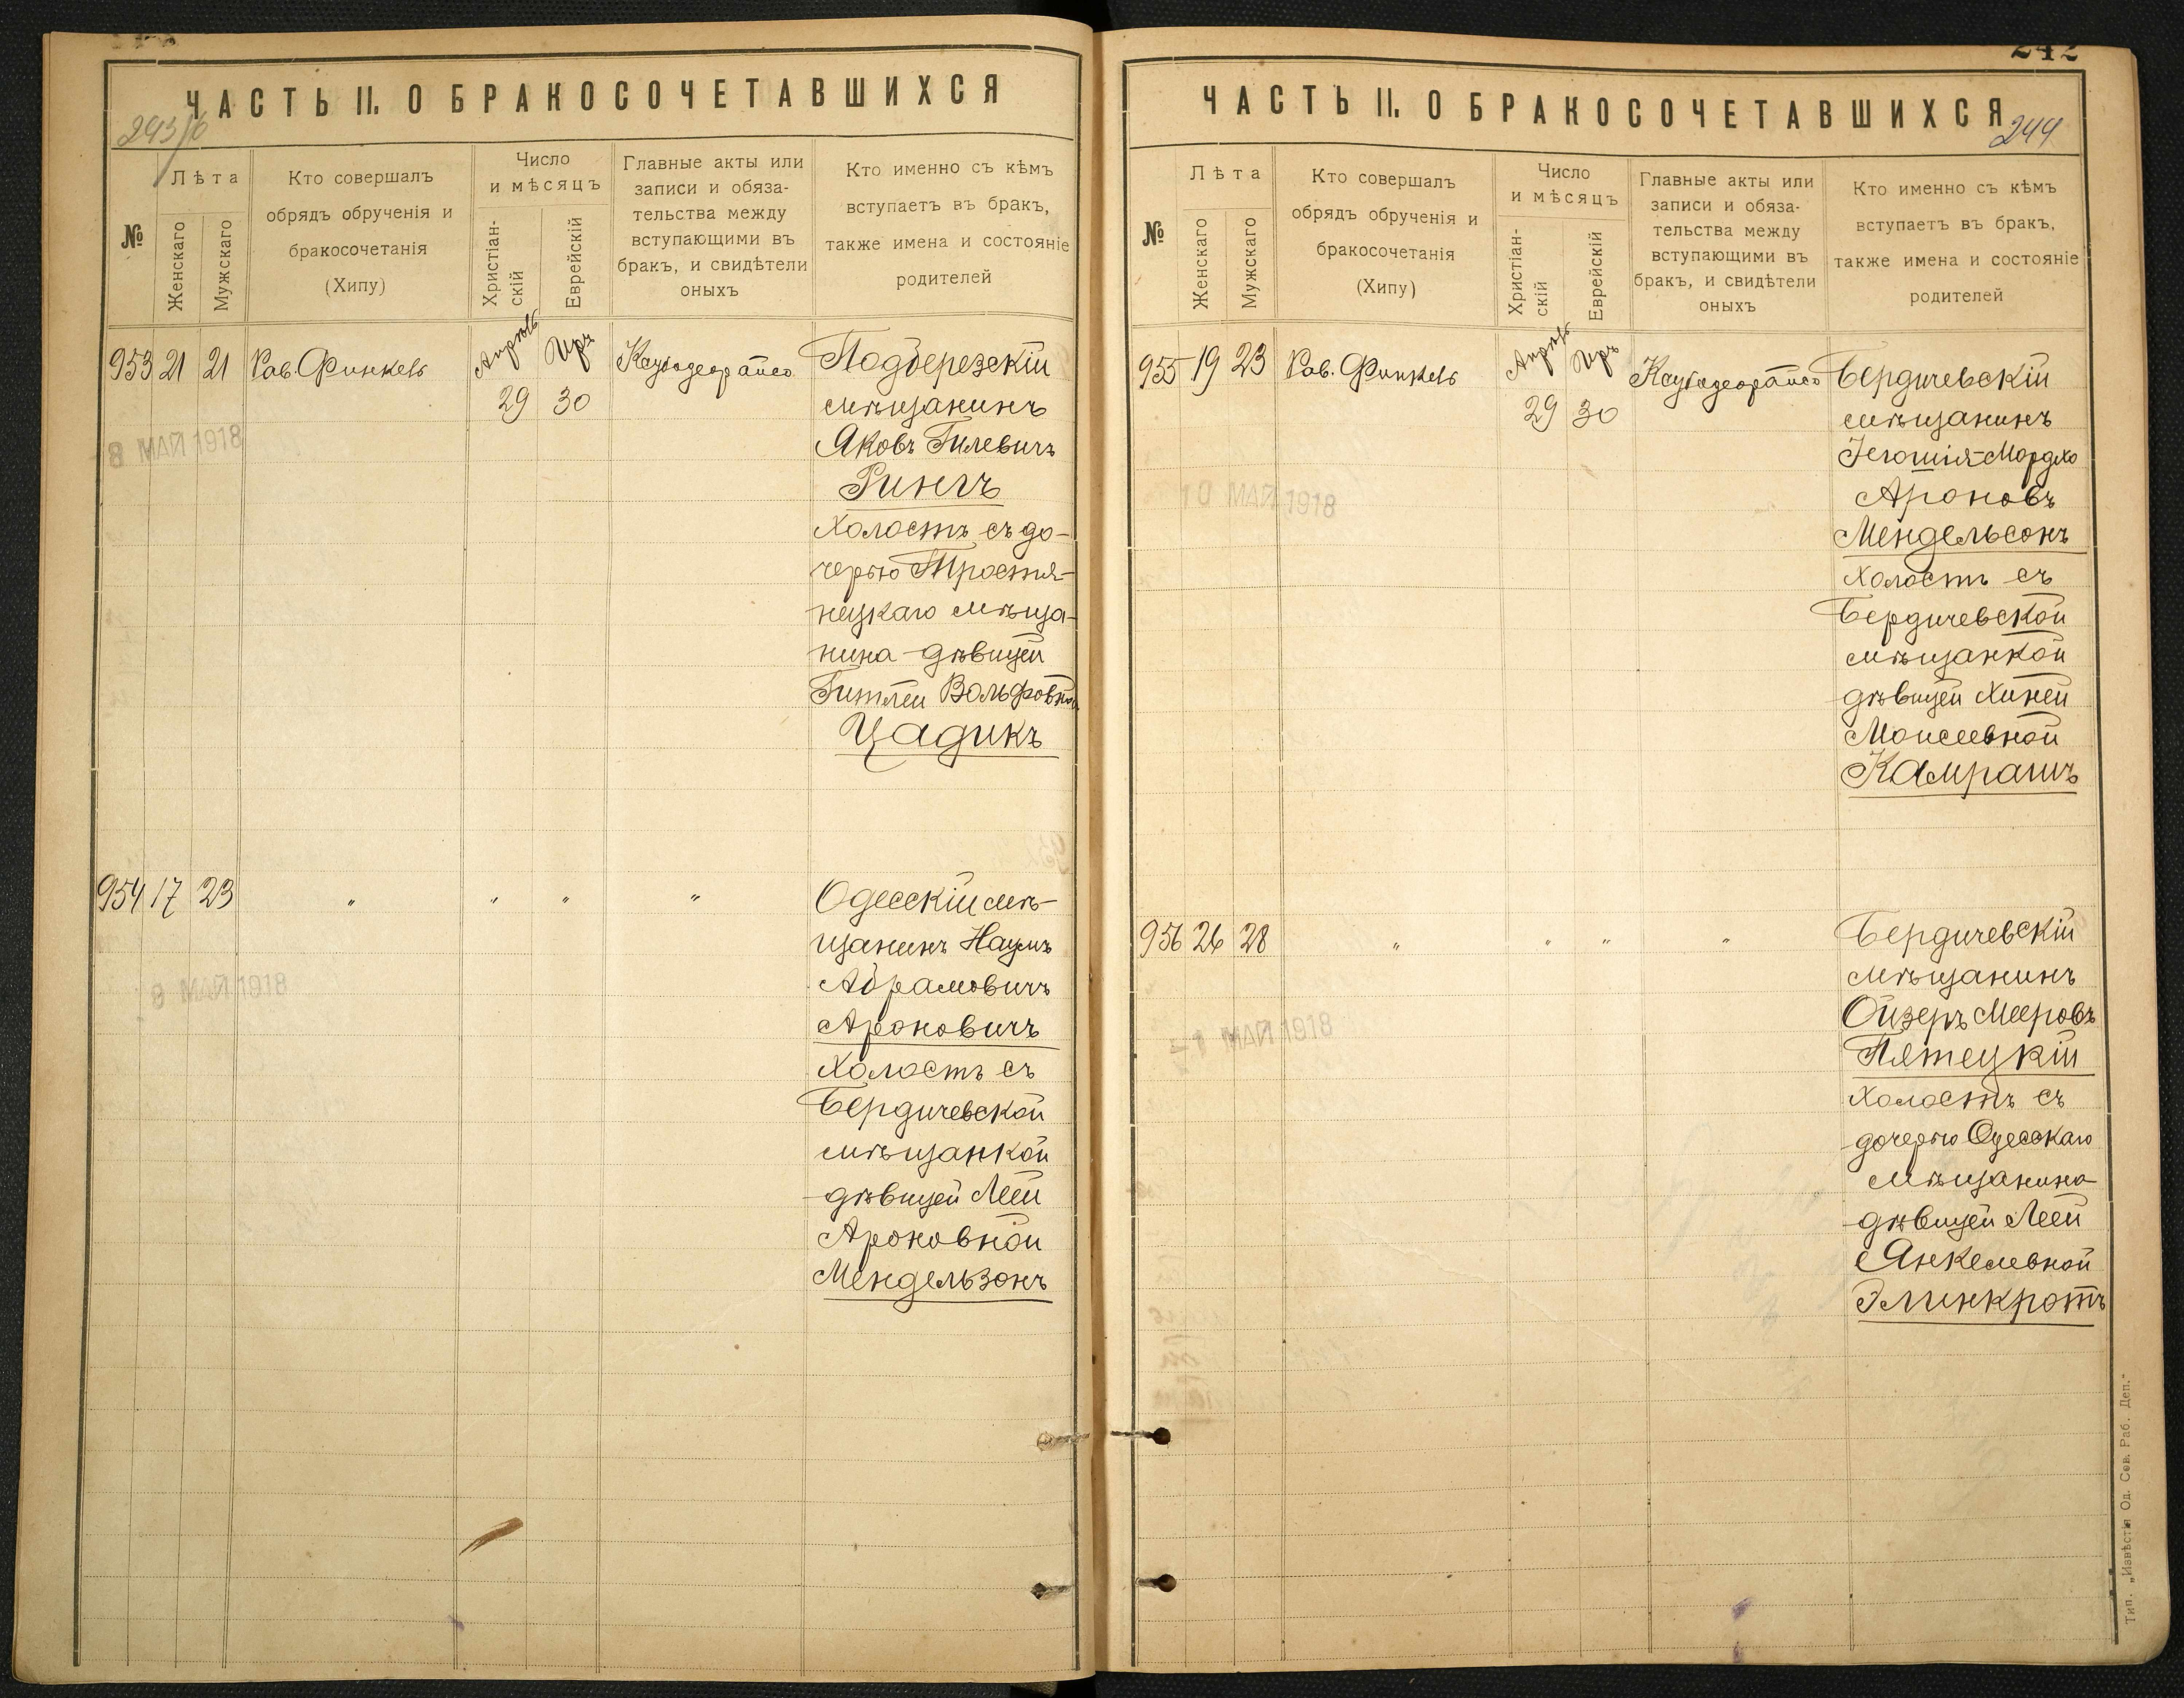 ЧАСТЬ II. О БРАКОСОЧЕТАВШИХСЯ
243/6
№
Лѣта
Женскаго
Мужскаго
Кто совершалъ
обрядъ обрученія и
бракосочетанія
(Хипу)
Число
и мѣсяцъ
Христіан-
скій
Еврейскій
Главные акты или
записи и обяза-
тельства между
вступающими въ
бракъ, и свидѣтели
оныхъ
Кто именно съ кѣмъ
вступаетъ въ бракъ,
также имена и состояніе
родителей
953 21 21 Рав. Финкель Апрѣль Иръ
29 30
Подберезскій
мѣщанинъ
Яковъ Гилевичъ
Рингъ
холостъ съ до-
черью Тростя-
нецкаго мѣща-
нина дѣвицей
Гитлей Вольфовной
Цадикъ
8 МАЙ 1918
954 17 23 " " " "
Одесскій мѣ-
щанинъ Наумъ
Абрамовичъ
Ароновичъ
холостъ съ
Бердичевской
мѣщанкой
дѣвицей Леей
Ароновной
Мендельзонъ
МАЙ 1918
242
ЧАСТЬ II. О БРАКОСОЧЕТАВШИХСЯ
244
№
Лѣта
Женскаго
Мужскаго
Кто совершалъ
обрядъ обрученія и
бракосочетанія
(Хипу)
Число
и мѣсяцъ
Христіан-
скій
Еврейскій
Главные акты или
записи и обяза-
тельства между
вступающими въ
бракъ, и свидѣтели
оныхъ
Кто именно съ кѣмъ
вступаетъ въ бракъ,
также имена и состояніе
родителей
955 19 23 Рав. Финкель Апрѣль Иръ
29 30
Бердичевскій
мѣщанинъ
Іегошія-Мордко
Ароновъ
Мендельсонъ
холостъ съ
Бердичевской
мѣщанкой
дѣвицей Хиней
Моисеевной
Камрашъ
10 МАЙ 1918
956 26 28 " " " "
Бердичевскій
мѣщанинъ
Ойзеръ Мееровъ
Пятецкій
холостъ съ
дочерью Одесскаго
мѣщанина
дѣвицей Леей
Янкелевной
Элинкротъ
МАЙ 1918
Тип. „Извѣстія Од. Сов. Раб. Деп."